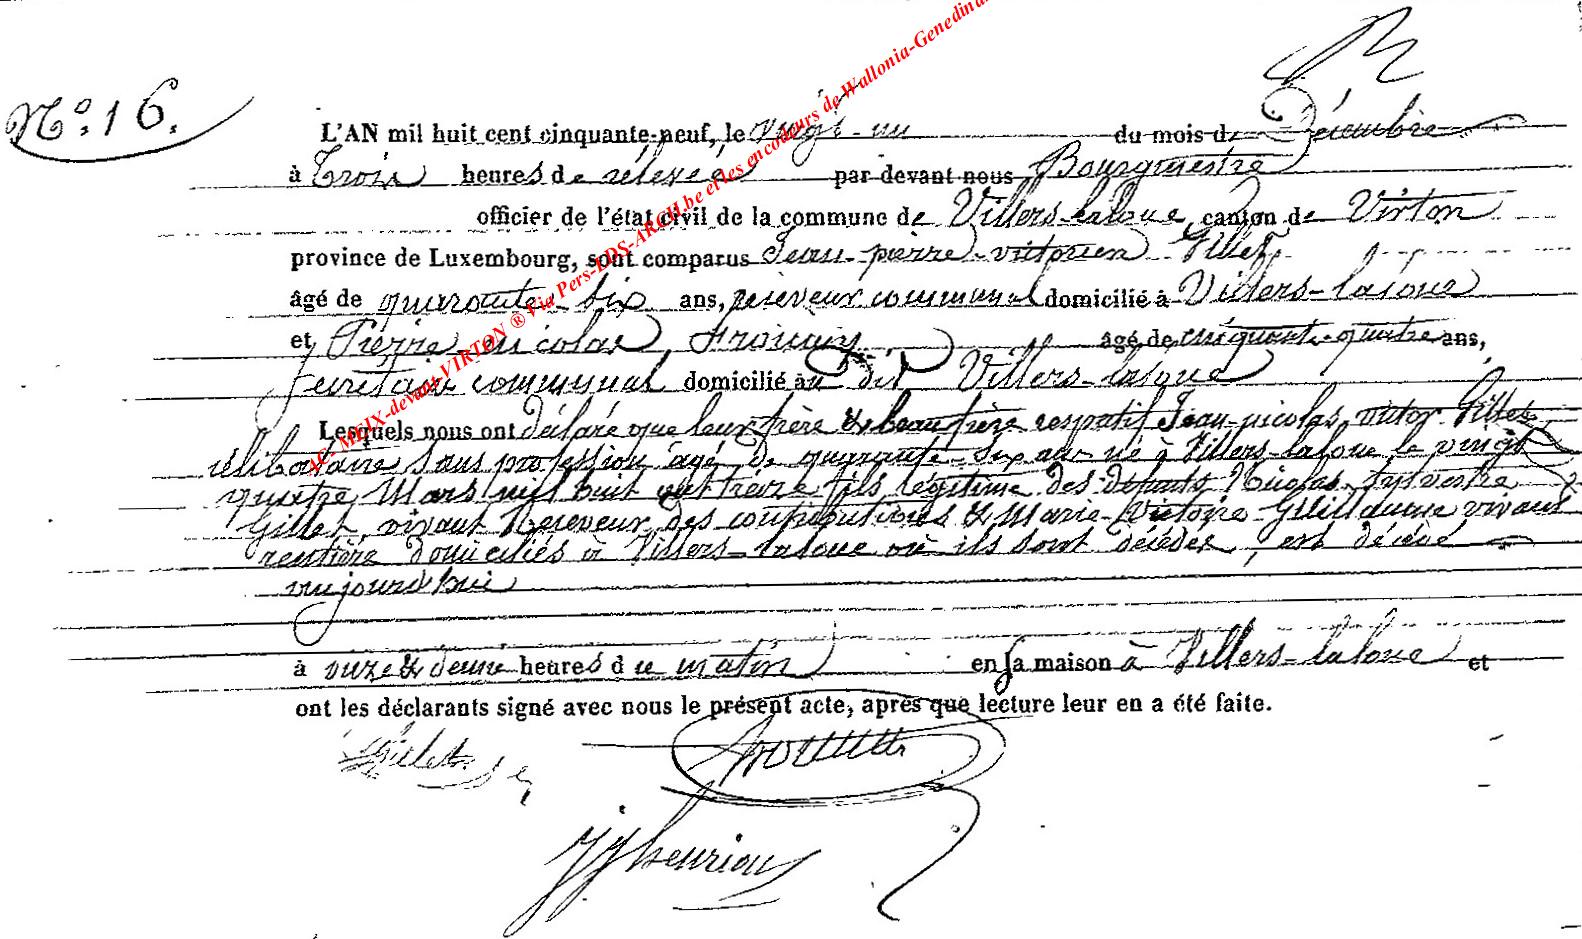 N.º 16.
L'AN mil huit cent cinquante-neuf, le vingt-un du mois de Décembre
à Trois heures de relevée par devant nous Bourgmestre
officier de l'état civil de la commune de Villers-laloue, canton de Virton
province de Luxembourg, sont comparus Jean-pierre-victorien Gillet,
âgé de quarante-six ans, receveur communal domicilié à Villers-laloue
et Pierre-nicolas, âgé de cinquante-quatre ans,
secrétaire communal domicilié au dit Villers-laloue
Lesquels nous ont déclaré que leur frère & beau frère respectif Jean-nicolas victor Gillet,
célibataire sans profession âgé de quarante-six ans né à Villers-laloue le vingt
quatre Mars mil huit cent treize fils légitime des défunts Nicolas-sylvestre
Gillet, vivant Receveur des contributions & Marie-Victoire Guillaume vivant
rentière domiciliés à Villers-laloue où ils sont décédés, est décédé
aujourd'hui
à onze & demie heures du matin en sa maison à Villers-laloue et
ont les déclarants signé avec nous le présent acte, après que lecture leur en a été faite.
Gillet
JJ henrion
AC. MEIX-devant-VIRTON ® Via Pers-EDS-ARCH.be et les encodeurs de Wallonia-Genedinaa